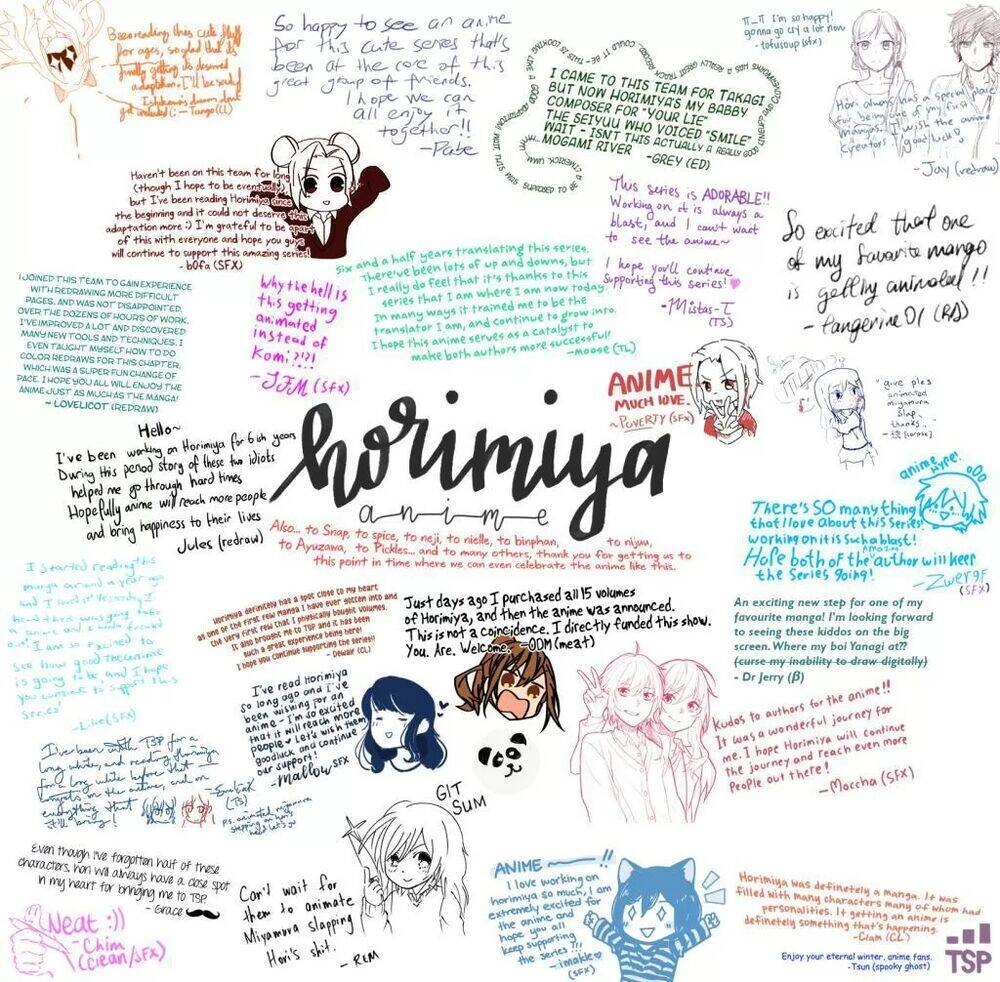 Been reading this cute fluff
for ages, so glad that it's
finally getting its deserved
adaptation. I'll be sad if
Ishikawa's dream don't
get included (; — Tango (CL)
So happy to see an anime
for this cute series that's
been at the core of this
great group of friends.
I hope we can
all enjoy it
together!!
-Pabe
I CAME TO THIS TEAM FOR TAKAGI
BUT NOW HORIMIYA'S MY BABBY
COMPOSER FOR "YOUR LIE"
THE SEIYUU WHO VOICED "SMILE"
WAIT - ISN'T THIS ACTUALLY A REALLY GOOD
MOGAMI RIVER -GREY (ED)
π_π I'm so happy!
gonna go cry a lot now
- tofusoup (sfx)
Hori always has a special place
for being one of my first
mangas. I wish the anime
creators good luck
-Jay (redraw)
Haven't been on this team for long
(though I hope to be eventually)
but I've been reading Horimiya since
the beginning and it could not deserve this
adaptation more :) I'm grateful to be apart
of this with everyone and hope you guys
will continue to support this amazing series!
- b0fa (SFX)
This series is ADORABLE!!
Working on it is always a
blast, and I can't wait
to see the anime~
I hope you'll continue
supporting this series!
-Mistas-T
(TS)
So excited that one
of my favourite mango
is getting animated!!
- tangerine01 (RD)
I JOINED THIS TEAM TO GAIN EXPERIENCE
WITH REDRAWING MORE DIFFICULT
PAGES, AND WAS NOT DISAPPOINTED.
OVER THE DOZENS OF HOURS OF WORK,
I'VE IMPROVED A LOT AND DISCOVERED
MANY NEW TOOLS AND TECHNIQUES. I
EVEN TAUGHT MYSELF HOW TO DO
COLOR REDRAWS FOR THIS CHAPTER,
WHICH WAS A SUPER FUN CHANGE OF
PACE. I HOPE YOU ALL WILL ENJOY THE
ANIME JUST AS MUCH AS THE MANGA!
~ LOVELICOT (REDRAW)
Why the hell is
this getting
animated
instead of
Komi?!?!
-JFM (SFX)
Six and a half years translating this series.
There've been lots of up and downs, but
I really do feel that it's thanks to this
series that I am where I am now today.
In many ways it trained me to be the
translator I am, and continue to grow into.
I hope this anime serves as a catalyst to
make both authors more successful!
—moose (TL)
ANIME
MUCH LOVE.
~POVERTY (SFX)
"give ples
animated
miyamura
slap.
thanks..."
Hello~
I've been working on Horimiya for 6ish years
During this period story of these two idiots
helped me go through hard times
Hopefully anime will reach more people
and bring happiness to their lives
Jules (redraw)
horimiya
anime
Also... to Snap, to spice, to neji, to nielle, to binphan, to nijuu,
to Ayuzawa, to Pickles... and to many others, thank you for getting us to
this point in time where we can even celebrate the anime like this.
anime
hype!
There's SO many thing
that I love about this series!
working on it is such a blast!
Hope both of the Amazing author will keep
the series going!
-Zwergf
(SFX)
I started reading this
manga around a year ago
and I loved it! Yesterday I
heard there was going to be
a anime and I
out! I am so excited to
see how good the anime
is going to be and I hope
you continue to support this
series!
-Like (SFX)
Horimiya definitely has a spot close to my heart
as one of the first few manga I have ever gotten into and
the very first few that I physically bought volumes.
It is also brought me to TSP and it has been
such a great experience being here!
I hope you continue supporting the series!!
- Dewair (CL)
Just days ago I purchased all 15 volumes
of Horimiya, and then the anime was announced.
This is not a coincidence. I directly funded this show.
You. Are. Welcome. -ODM (meat)
An exciting new step for one of my
favourite manga! I'm looking forward
to seeing these kiddos on the big
screen. Where my boi Yanagi at??
(curse my inability to draw digitally)
- Dr Jerry (β)
I've read Horimiya
so long ago and I've
been wishing for an
anime - I'm so excited
that it will reach more
people ♥ Let's wish them
goodluck and continue
our support!
-Mallow SFX
Kudos to authors for the anime!!
It was a wonderful journey for
me. I hope Horimiya will continue
the journey and reach even more
People out there!
—Moccha (SFX)
I've been with TSP for a
long while, and reading Horimiya
for a long while before that —
everything that
still bring!
(TS)
p.s. animated miyamura
GIT
SUM
Even though I've forgotten half of these
characters, hori will always have a close spot
in my heart for bringing me to TSP.
- Grace
Neat :))
-Chim
(clean/SFX)
Can't wait for
them to animate
Miyamura slapping
Hori's shit.
- RLM
ANIME !!
I love working on
horimiya so much, I am
extremely excited for
the anime and
hope you all
keep supporting
the series!!!
-imakie
(SFX)
Horimiya was definetely a manga. It was
filled with many characters many of whom had
personalities. It getting an anime is
definetely something that's happening.
-Clam (CL)
Enjoy your eternal winter, anime fans.
-Tsun (spooky ghost)
TSP